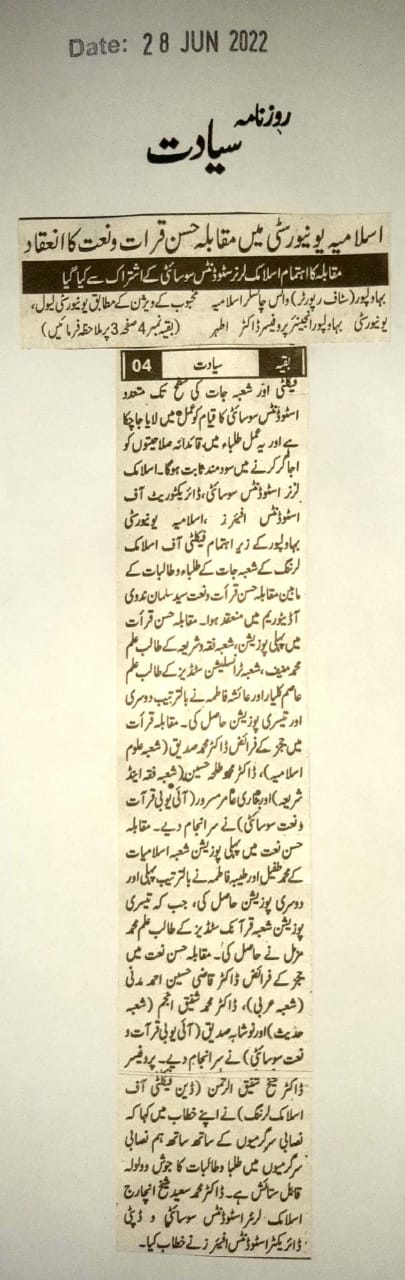 Date: 28 JUN 2022
روزنامہ
سیادت
اسلامیہ یونیورسٹی میں مقابلہ حسن قرات و نعت کا انعقاد
مقابلہ کا اہتمام اسلامک لرنرز سٹوڈنٹس سوسائٹی کے اشتراک سے کیا گیا
بہاولپور (سٹاف رپورٹر) وائس چانسلر اسلامیہ محبوب کے ویژن کے مطابق یونیورسٹی لیول،
یونیورسٹی بہاولپور انجینئر پروفیسر ڈاکٹر اطہر (بقیہ نمبر 4 صفحہ 3 پر ملاحظہ فرمائیں)
بقیہ سیادت 04
فیکلٹی اور شعبہ جات کی سطح تک متعدد
اسٹوڈنٹس سوسائٹی کا قیام کو عمل میں لایا جا چکا
ہے اور یہ عمل طلباء میں قائدانہ صلاحیتوں کو
اجاگر کرنے میں سود مند ثابت ہوگا۔ اسلامک
لرنرز اسٹوڈنٹس سوسائٹی، ڈائریکٹوریٹ آف
اسٹوڈنٹس افیئرز، اسلامیہ یونیورسٹی
بہاولپور کے زیر اہتمام فیکلٹی آف اسلامک
لرننگ کے شعبہ جات کے طلباء و طالبات کے
مابین مقابلہ حسن قرأت و نعت سید سلمان ندوی
آڈیٹوریم میں منعقد ہوا۔ مقابلہ حسن قرأت
میں پہلی پوزیشن، شعبہ فقہ و شریعہ کے طالب علم
محمد معیف، شعبہ ٹرانسلیشن سٹڈیز کے طالب علم
عاصم کلیار اور عائشہ فاطمہ نے بالترتیب دوسری
اور تیسری پوزیشن حاصل کی۔ مقابلہ قرأت
میں ججز کے فرائض ڈاکٹر محمد صدیق (شعبہ علوم
اسلامیہ)، ڈاکٹر محمد طلحہ حسین (شعبہ فقہ اینڈ
شریعہ) اور قاری عامر مسرور (آئی یو بی قرآت
و نعت سوسائٹی) نے سر انجام دیے۔ مقابلہ
حسن نعت میں پہلی پوزیشن شعبہ اسلامیات
کے محمد طفیل اور طیبہ فاطمہ نے بالترتیب پہلی اور
دوسری پوزیشن حاصل کی، جب کہ تیسری
پوزیشن شعبہ قرآنک سٹڈیز کے طالب علم محمد
مزمل نے حاصل کی۔ مقابلہ حسن نعت میں
ججز کے فرائض ڈاکٹر قاضی حسین احمد مدنی
(شعبہ عربی)، ڈاکٹر محمد شفیق انجم (شعبہ
حدیث) اور نوشابہ صدیق (آئی یو بی قرآت و
نعت سوسائٹی) نے سر انجام دیے۔ پروفیسر
ڈاکٹر شیخ شفیق الرحمن (ڈین فیکلٹی آف
اسلامک لرننگ) نے اپنے خطاب میں کہا کہ
نصابی سرگرمیوں کے ساتھ ساتھ ہم نصابی
سرگرمیوں میں طلبا و طالبات کا جوش و ولولہ
قابل ستائش ہے۔ ڈاکٹر محمد سعید شیخ انچارج
اسلامک لرنر اسٹوڈنٹس سوسائٹی و ڈپٹی
ڈائریکٹر اسٹوڈنٹس افیئرز نے خطاب کیا۔